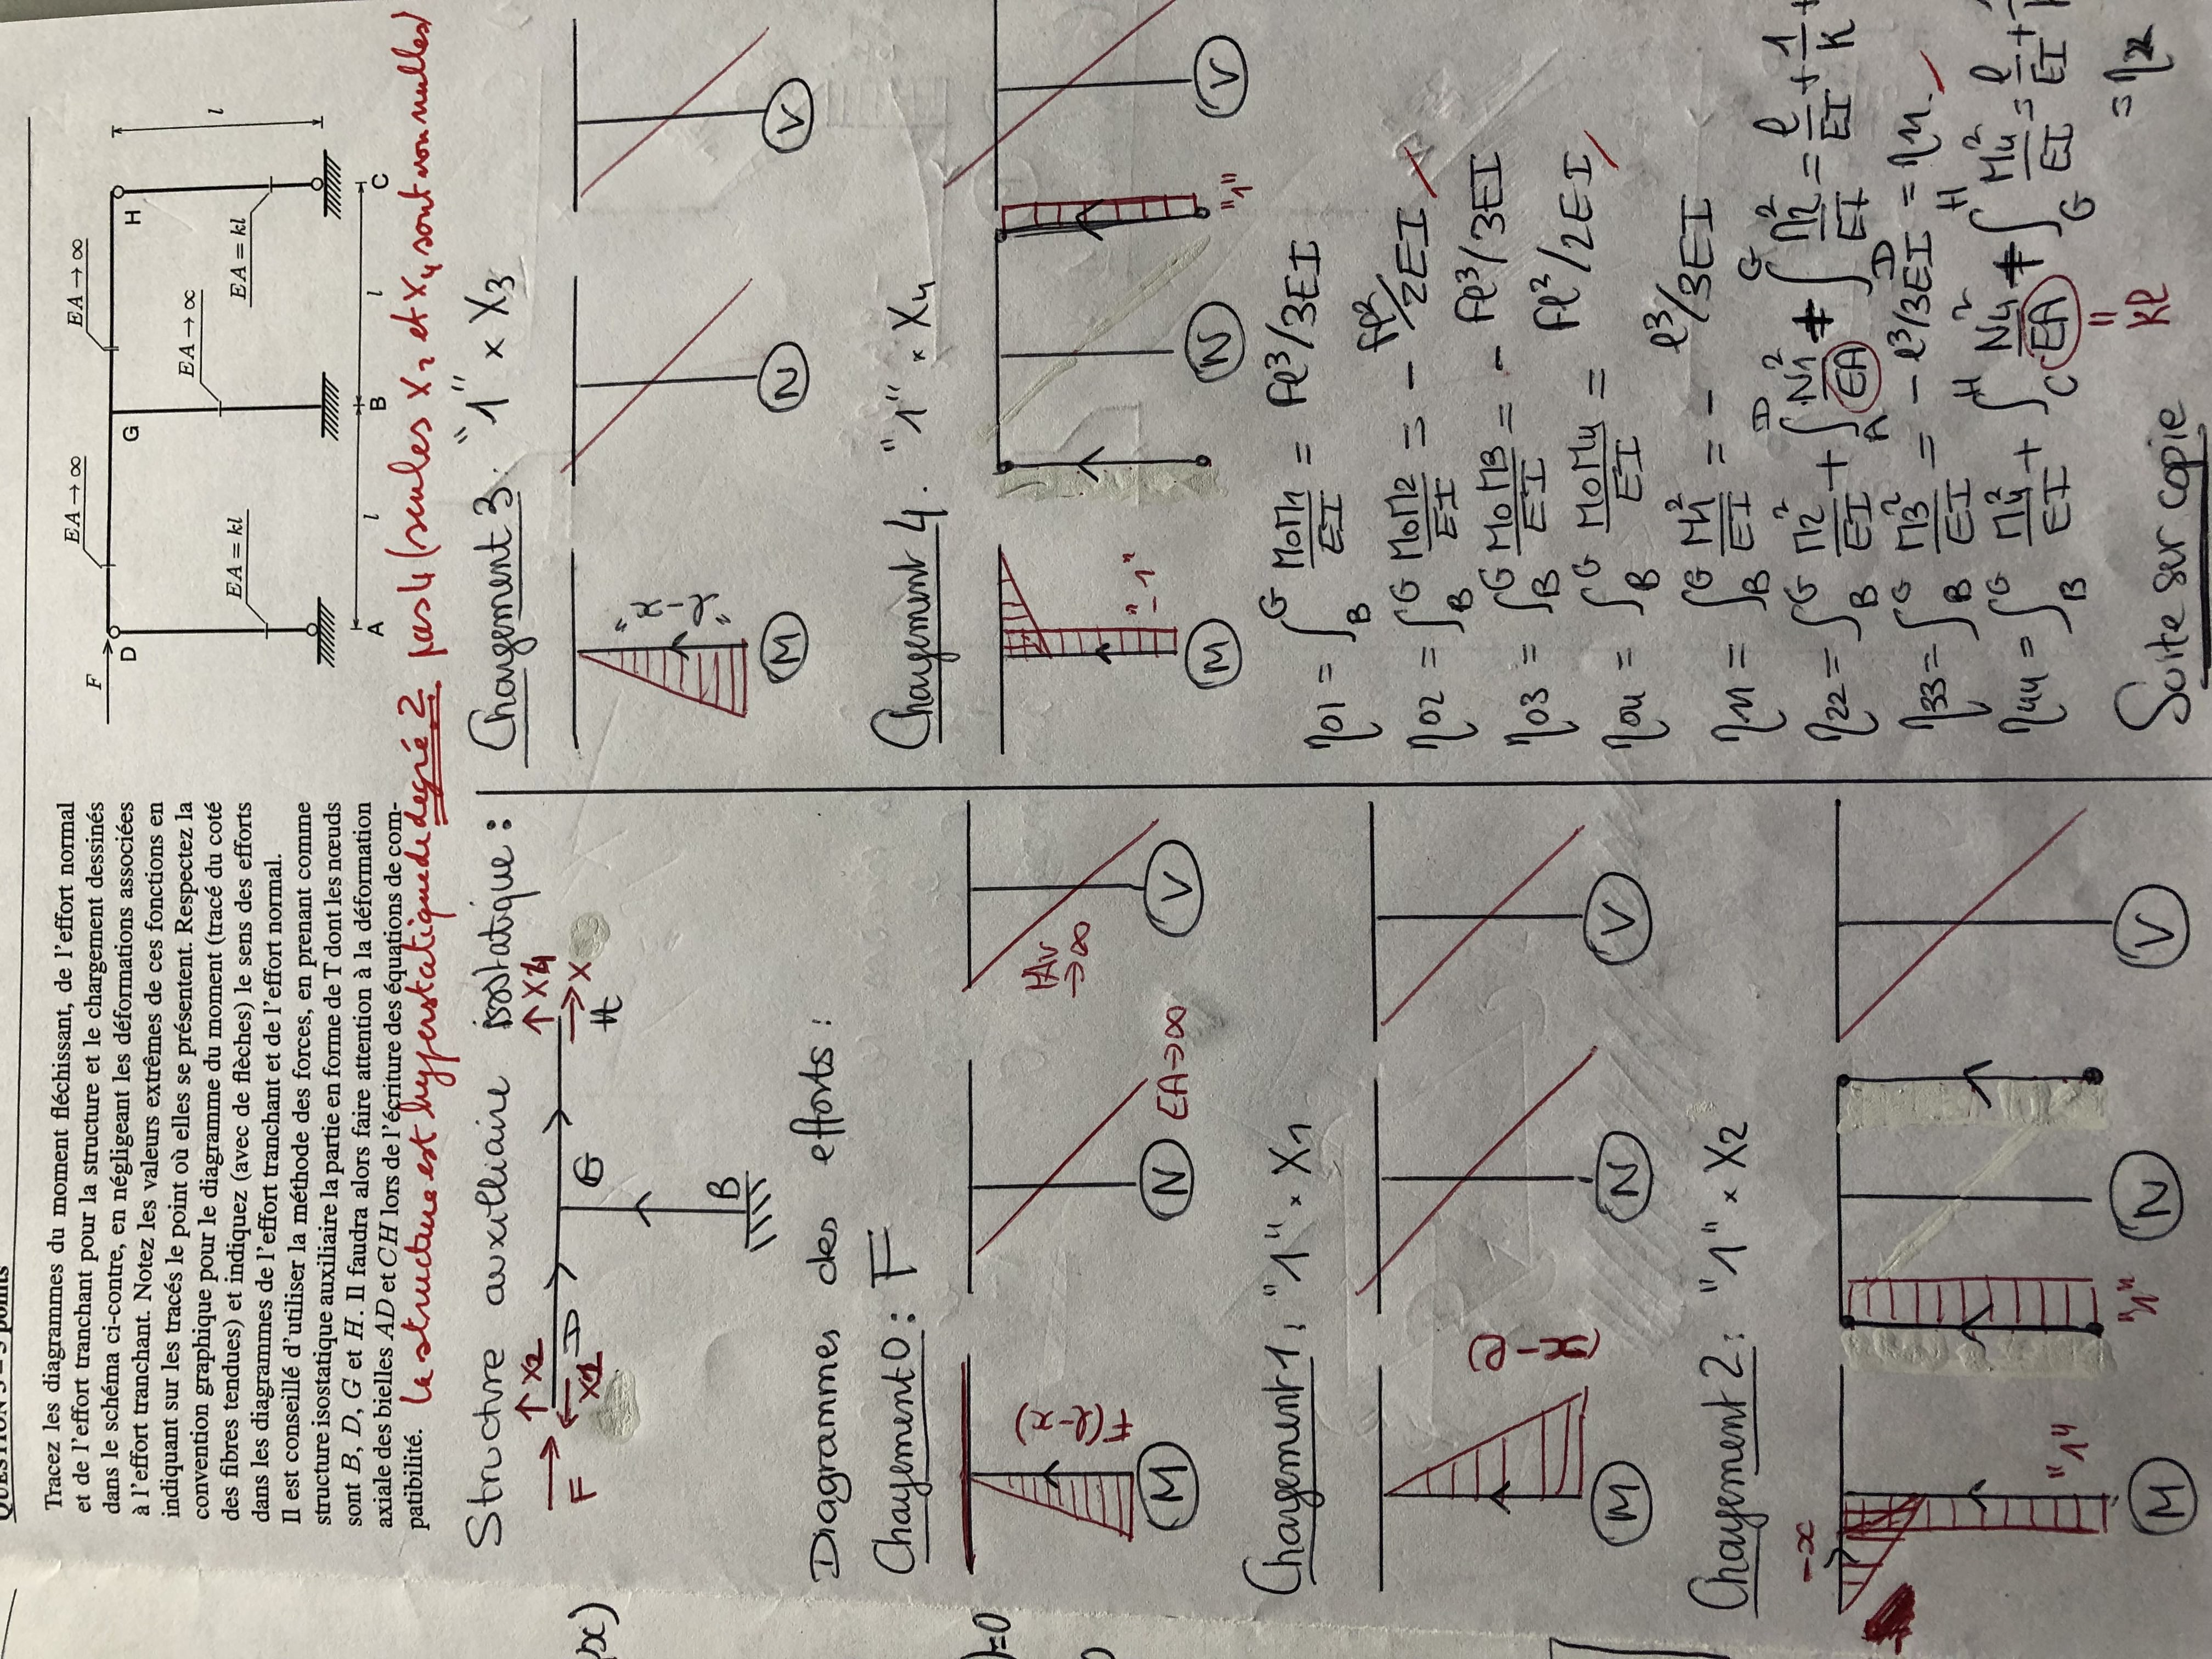 QUESTION 3 – 3 points
Tracez les diagrammes du moment fléchissant, de l'effort normal
et de l'effort tranchant pour la structure et le chargement dessinés
dans le schéma ci-contre, en négligeant les déformations associées
à l'effort tranchant. Notez les valeurs extrêmes de ces fonctions en
indiquant sur les tracés le point où elles se présentent. Respectez la
convention graphique pour le diagramme du moment (tracé du coté
des fibres tendues) et indiquez (avec de flèches) le sens des efforts
dans les diagrammes de l'effort tranchant et de l'effort normal.
Il est conseillé d'utiliser la méthode des forces, en prenant comme
structure isostatique auxiliaire la partie en forme de T dont les nœuds
sont B, D, G et H. Il faudra alors faire attention à la déformation
axiale des bielles AD et CH lors de l'écriture des équations de com-
patibilité.
EA → ∞ EA → ∞
F
D G H
EA → ∞
l
EA = kl EA = kl
A l B l C
la structure est hyperstatique de degré 2 pas 4 (seules X2 et X4 sont non nulles)
Structure auxilliaire isostatique :
X2 X4
F X1 D G H X
B
x)
Diagrammes des efforts :
Chargement 0 : F
)=0
F(l-x)
M N EA→∞ V
→∞
Chargement 1 : "1" × X1
(x-l)
M N V
Chargement 2 : "1" × X2
-x
"1" "1"
M N V
Chargement 3 : "1" × X3
"l-x"
M N V
Chargement 4 : "1" × X4
"-1" "1"
M N V
η01 = ∫_B^G M0M1/EI = Fl³/3EI
η02 = ∫_B^G M0M2/EI = - Fl²/2EI
η03 = ∫_B^G M0M3/EI = - Fl³/3EI
η04 = ∫_B^G M0M4/EI = Fl²/2EI
η11 = ∫_B^G M1²/EI = - l³/3EI
η22 = ∫_B^G M2²/EI + ∫_A^D N1²/EA + ∫_D^G M2²/EI = l/EI + 1/K +
η33 = ∫_B^G M3²/EI = - l³/3EI = η11
η44 = ∫_B^G M4²/EI + ∫_C^H N4²/EA + ∫_G^H M4²/EI = l/EI +
= η22
= kl
Suite sur copie